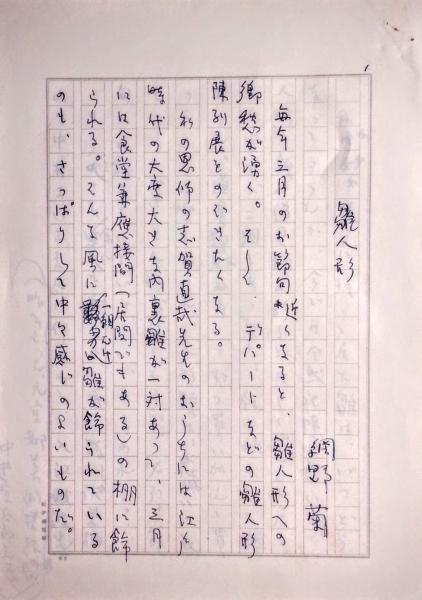 1
雛人形
網野菊
毎年三月のお節句近くなると、雛人形への
郷愁が湧く。そして、デパートなどの雛人形
陳列展をのぞきたくなる。
私の恩師の志賀直哉先生のおうちには江戸
時代の大変大きな内裏雛が一対あって、三月
には食堂兼應接間(居間でもある)の棚に飾
られる。そんな風に一組だけ雛が飾られている
のも、さっぱりして中々感じのよいものだ。